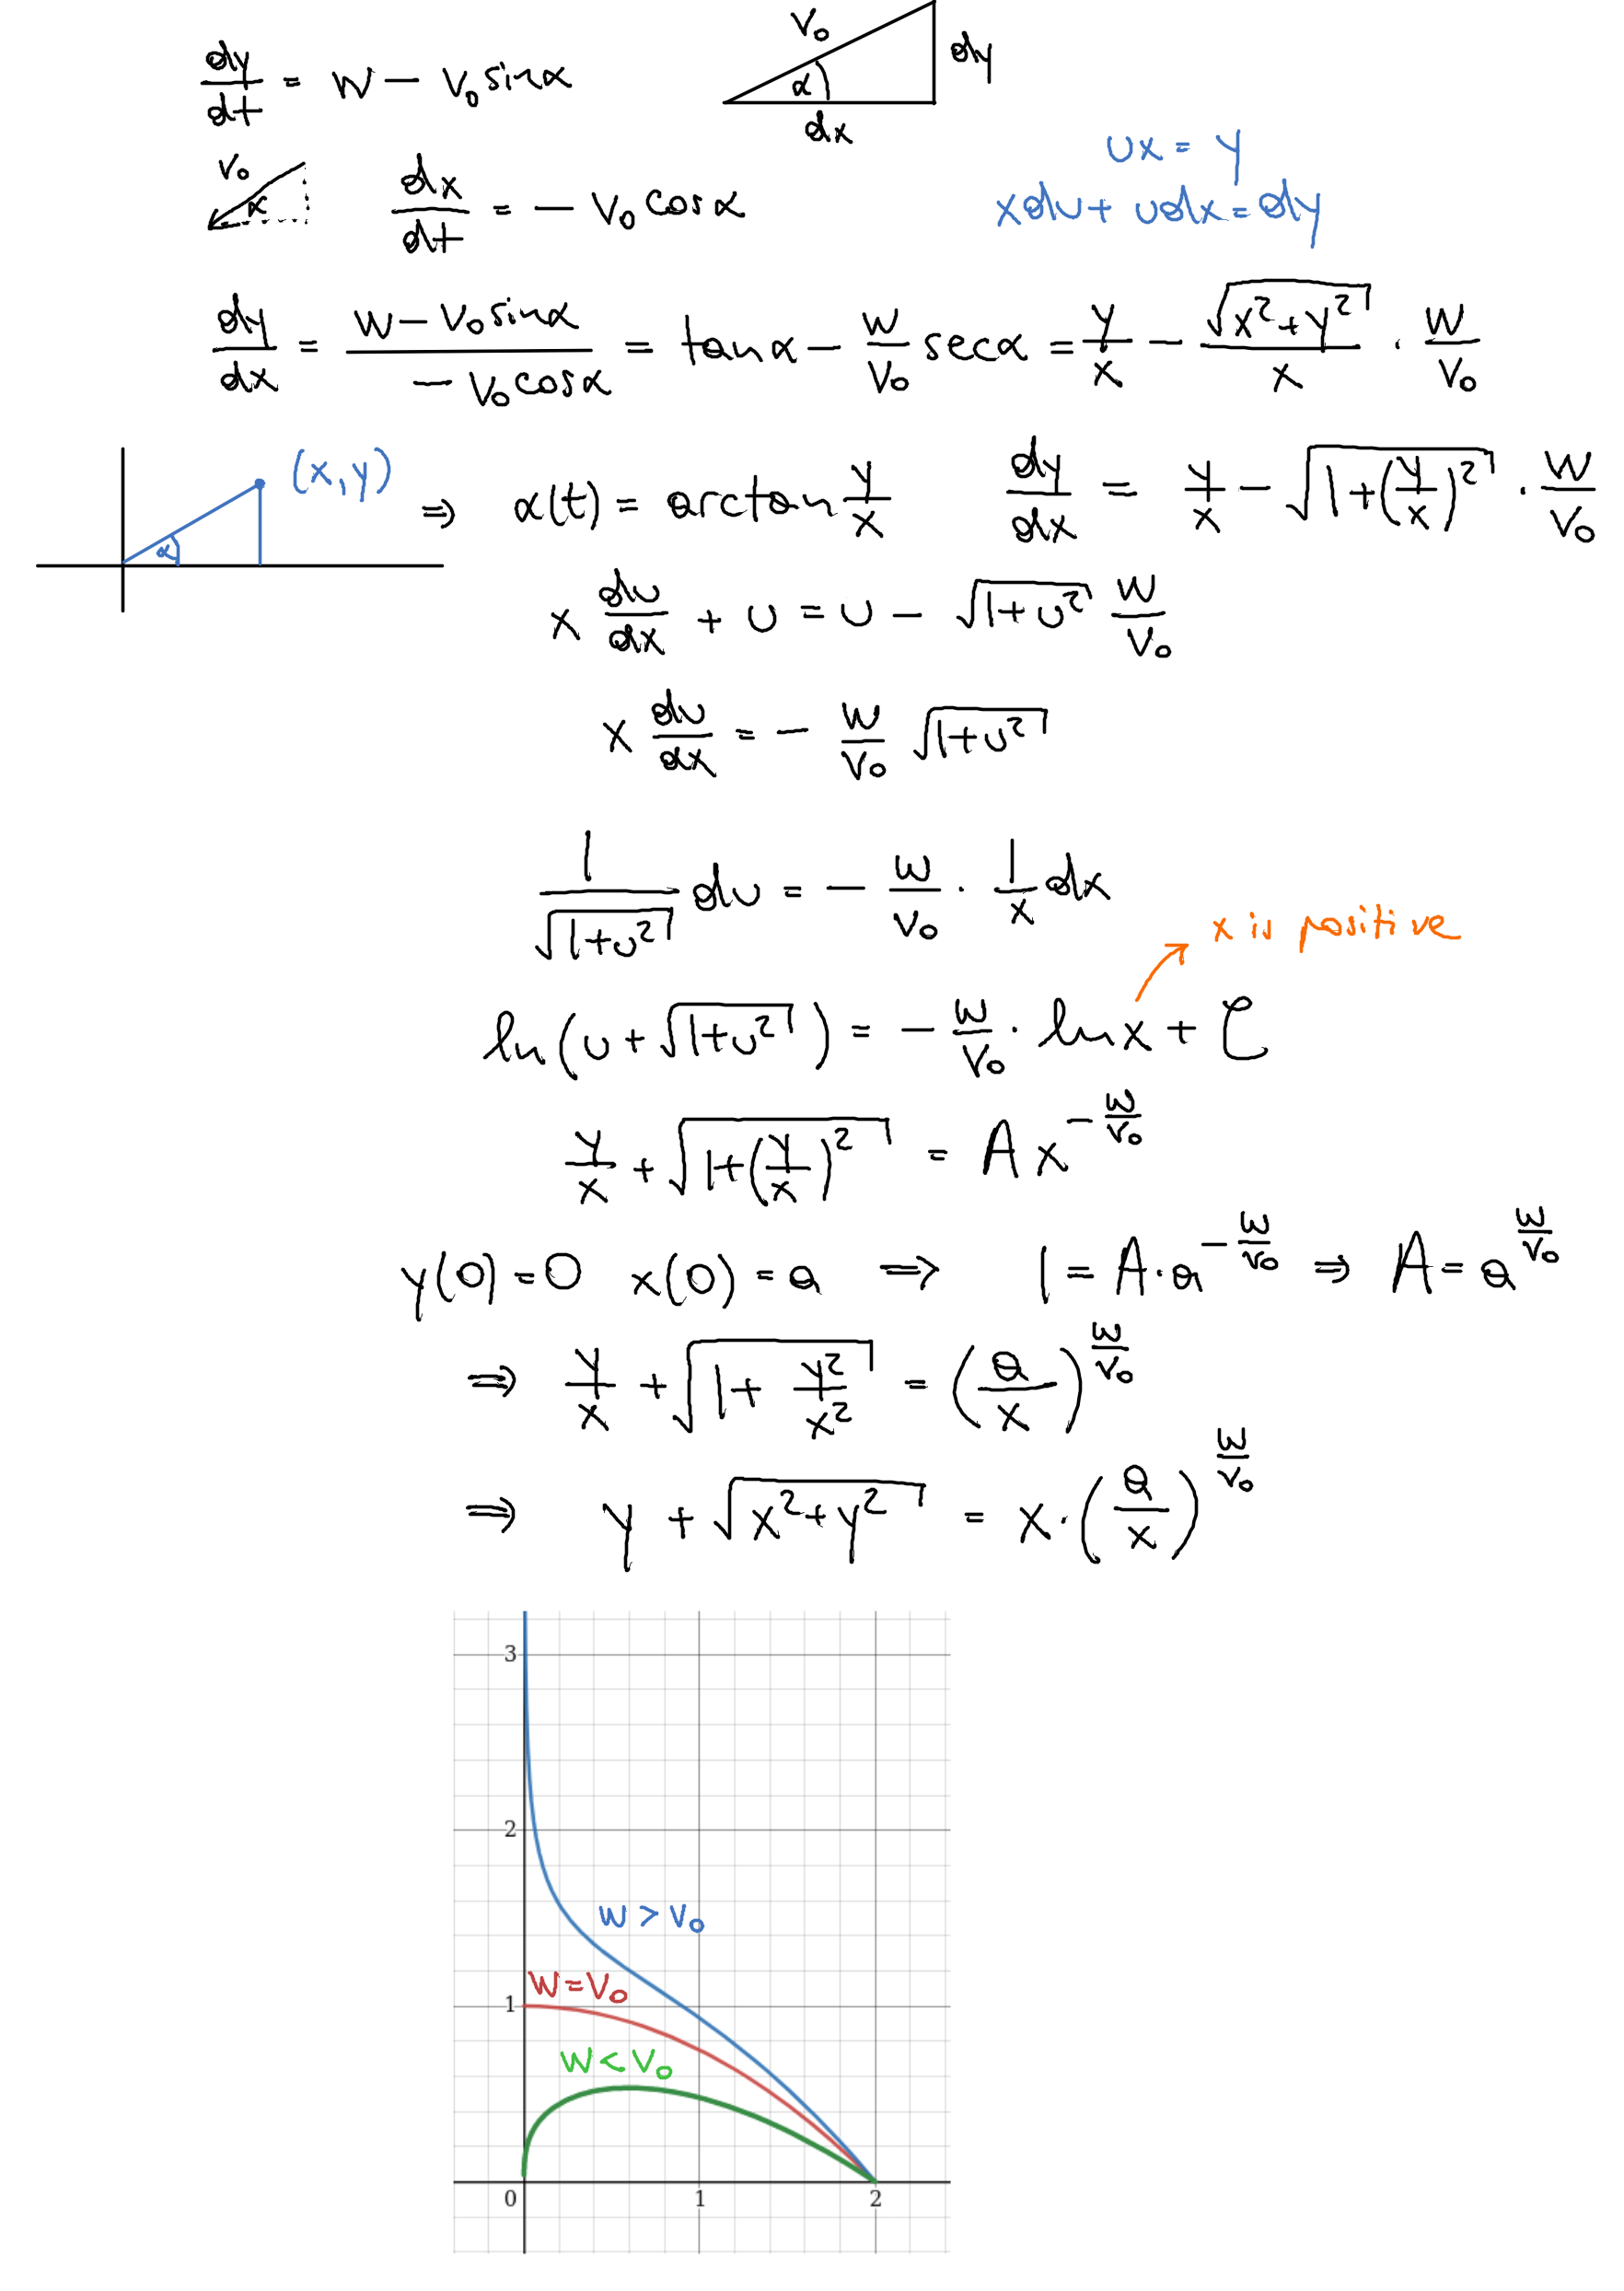 dy/dt = w − v₀ sinα
v₀
α
dx
dy
v₀
α
dx/dt = − v₀ cosα
ux = y
xdu + udx = dy
dy/dx = (w − v₀ sinα)/(− v₀ cosα) = tanα − w/v₀ secα = y/x − √(x²+y²)/x · w/v₀
(x,y)
α
⇒ α(t) = arctan y/x
dy/dx = y/x − √(1+(y/x)²) · w/v₀
x du/dx + u = u − √(1+u²) w/v₀
x du/dx = − w/v₀ √(1+u²)
1/√(1+u²) du = − w/v₀ · 1/x dx
x is positive
ln(u + √(1+u²)) = − w/v₀ · lnx + C
y/x + √(1+(y/x)²) = A x^(−w/v₀)
y(0) = 0 x(0) = a ⇒ 1 = A·a^(−w/v₀) ⇒ A = a^(w/v₀)
⇒ y/x + √(1 + y²/x²) = (a/x)^(w/v₀)
⇒ y + √(x²+y²) = x·(a/x)^(w/v₀)
3
2
w > v₀
w = v₀
1
w < v₀
0 1 2